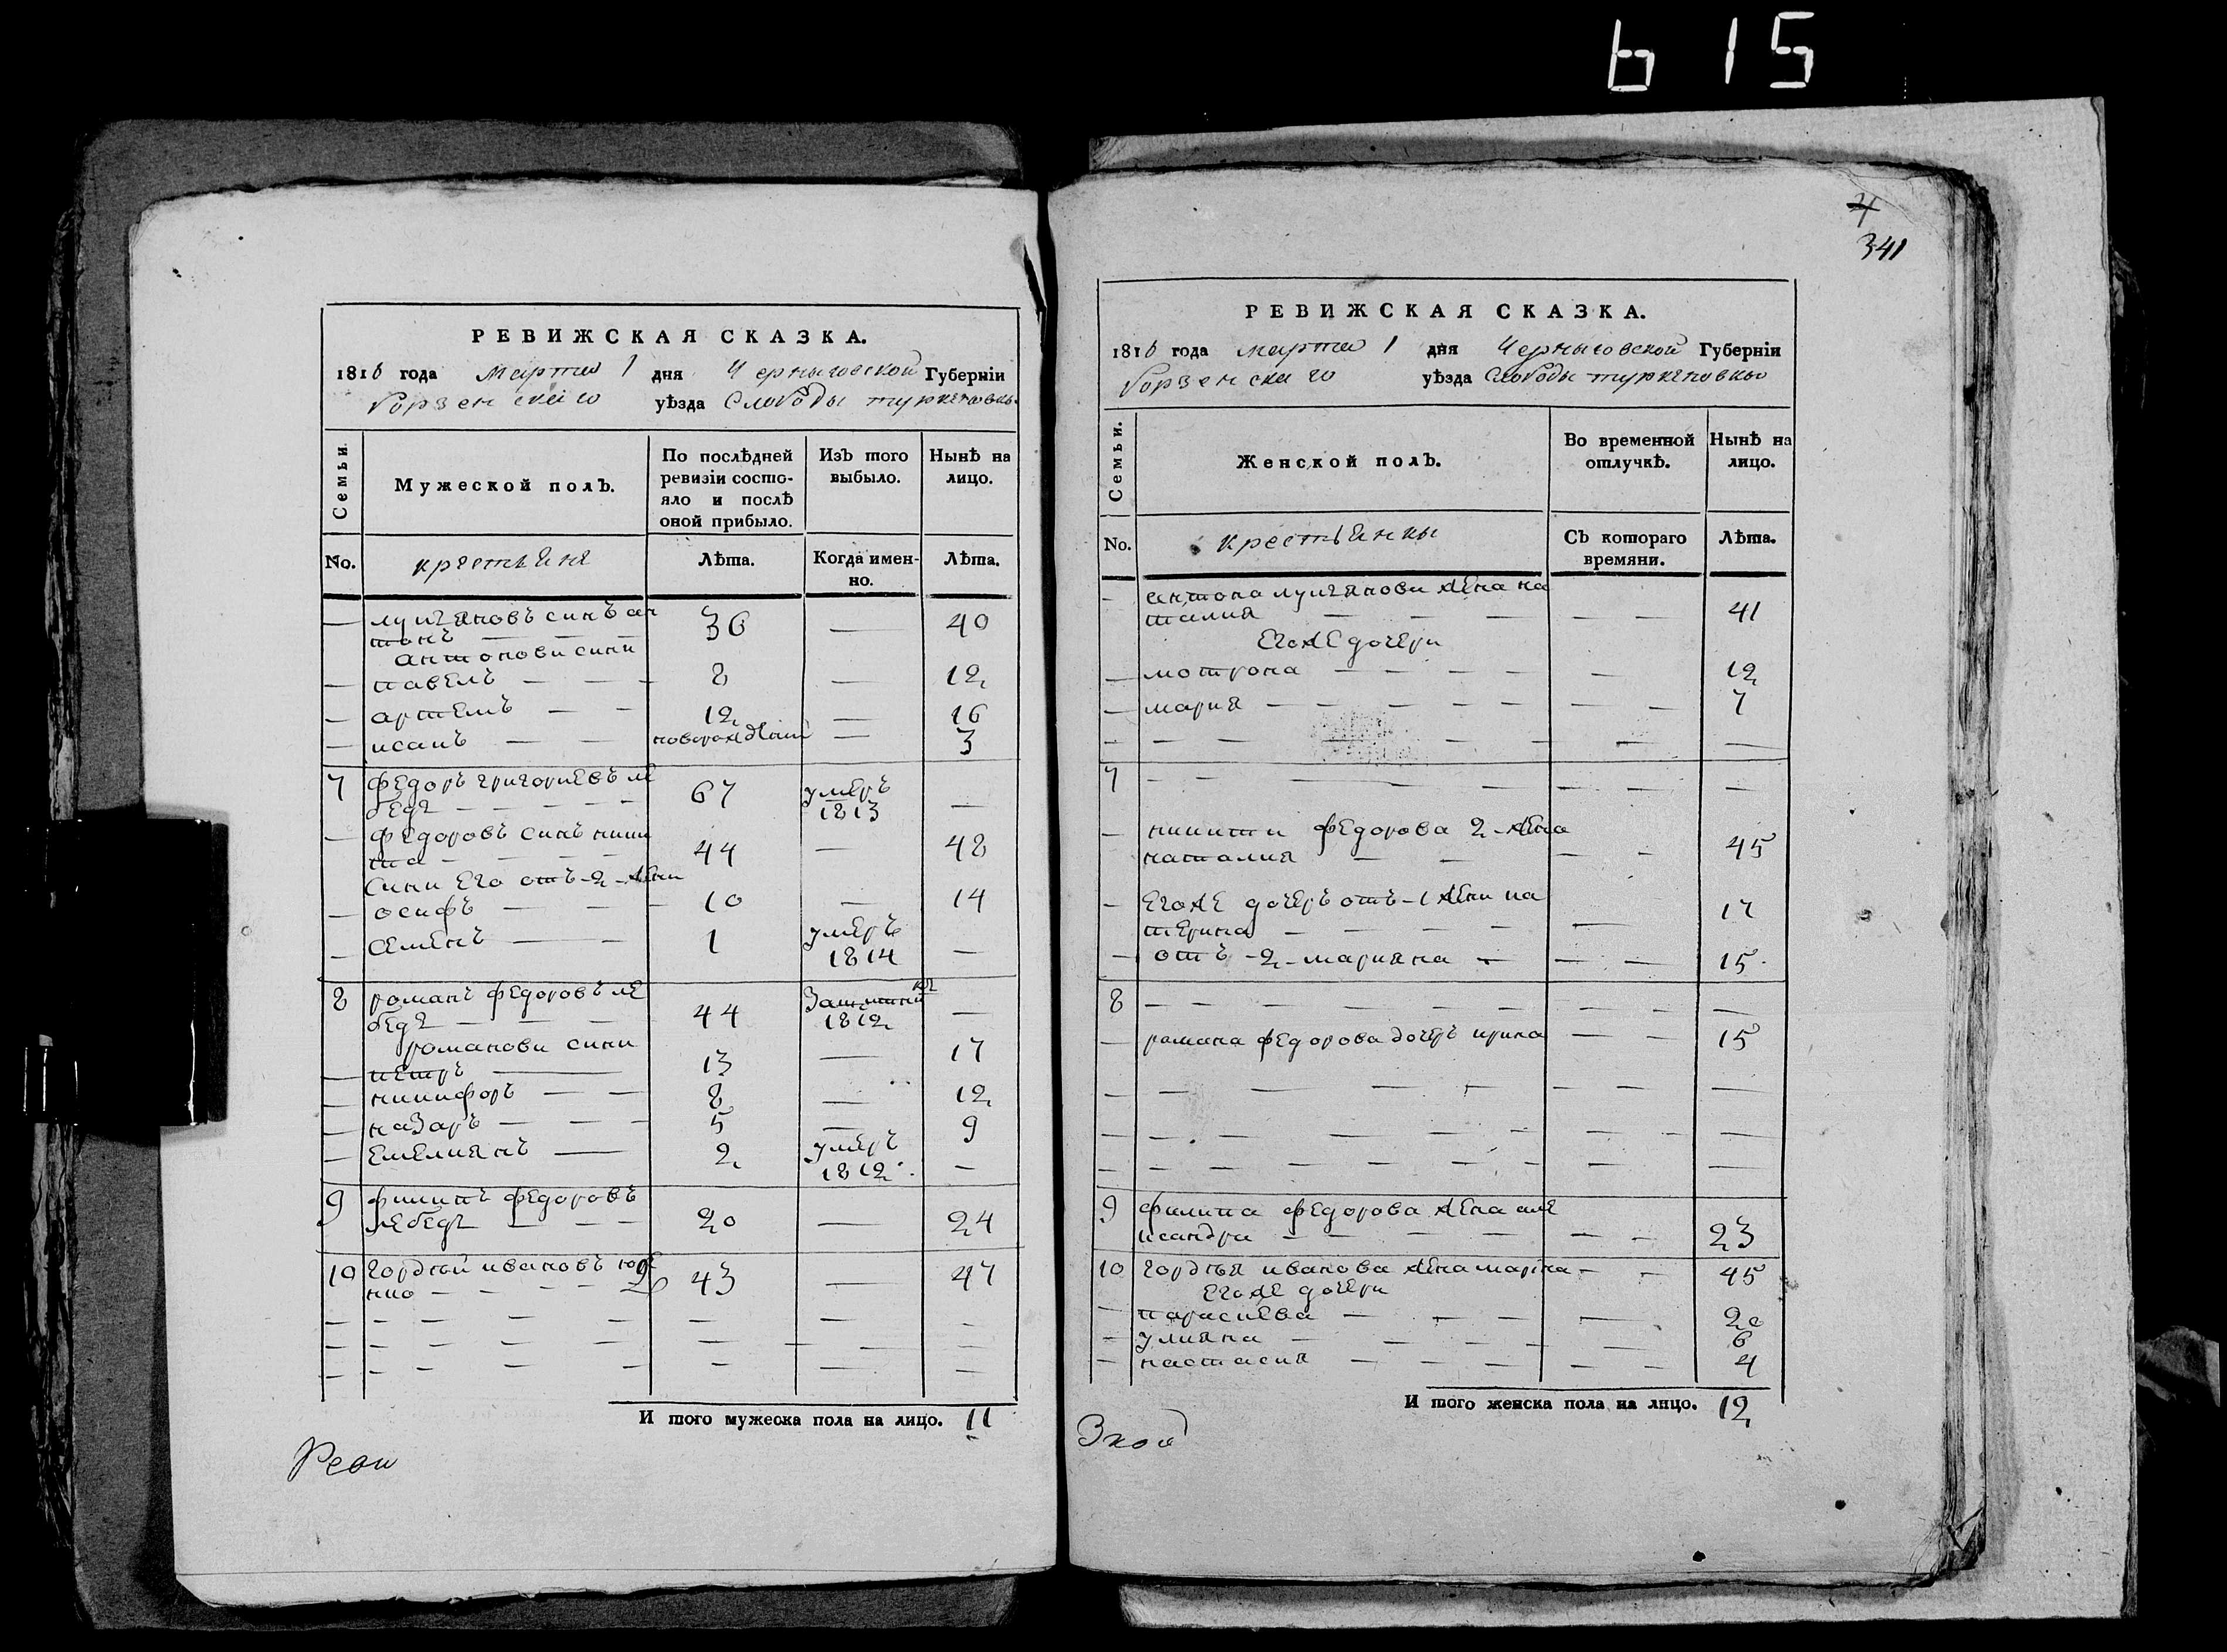 615
РЕВИЖСКАЯ СКАЗКА.
1816 года Марта 1 дня Черниговской Губерніи
Борзенскаго уѣзда Слободы
Семьи.
Мужеской полъ.
По послѣдней ревизіи состояло и послѣ оной прибыло.
Изъ того выбыло.
Нынѣ на лицо.
No.
крестьяне
Лѣта.
Когда именно.
Лѣта.
— лукъяновъ синъ ан
тонъ — — — 36 — 40
антонови сини
— павелъ — — — 8 — 12
— артемъ — — 12 — 16
— исаиъ — — новорожденій — 3
7 федоръ григориевъ ле
бедь — — — — 67 умеръ 1813 —
— федоровъ синъ ники
та — — — — 44 — 48
сини его отъ-2-жени
— осифъ — — — 10 — 14
— семенъ — — 1 умеръ 1814 —
8 романъ федоровъ ле
бедь — — — 44 1812 —
романови сини
— петръ — 13 — 17
— никифоръ — — 8 — 12
— назаръ — — — 5 — 9
— емелиянъ — 2 умеръ 1812 —
9 филипъ федоровъ
лебедь — — — 20 — 24
10 гордѣй ивановъ
43 — 47
И того мужеска пола на лицо. 11
Реви
4
341
РЕВИЖСКАЯ СКАЗКА.
1816 года марта 1 дня Черниговской Губерніи
Борзенскаго уѣзда Слободы
Семьи.
Женской полъ.
Во временной отлучкѣ.
Нынѣ на лицо.
No.
крестьянки
Съ котораго времяни.
Лѣта.
— антона лукъянови жена на
талия — — — — — 41
егоже дочери
— мотрона — — — — — 12
— мария — — — — — — — 7
7 — — — — — — —
— никити федорова 2-жена
наталия — — — — 45
— егоже дочеръ отъ-1 жени ка
терина — — — — — 17
— отъ-2-марияна — — — 15
8 — — — — — — — — —
— романа федорова дочеръ ирина — — 15
9 филипа федорова жена але
ксандра — — — — — — 23
10 гордѣя иванова жена марина — — 45
егоже дочери
— параскева — — — — — 20
— улияна — — — — 6
— настасия — — — — — — 4
И того женска пола на лицо. 12